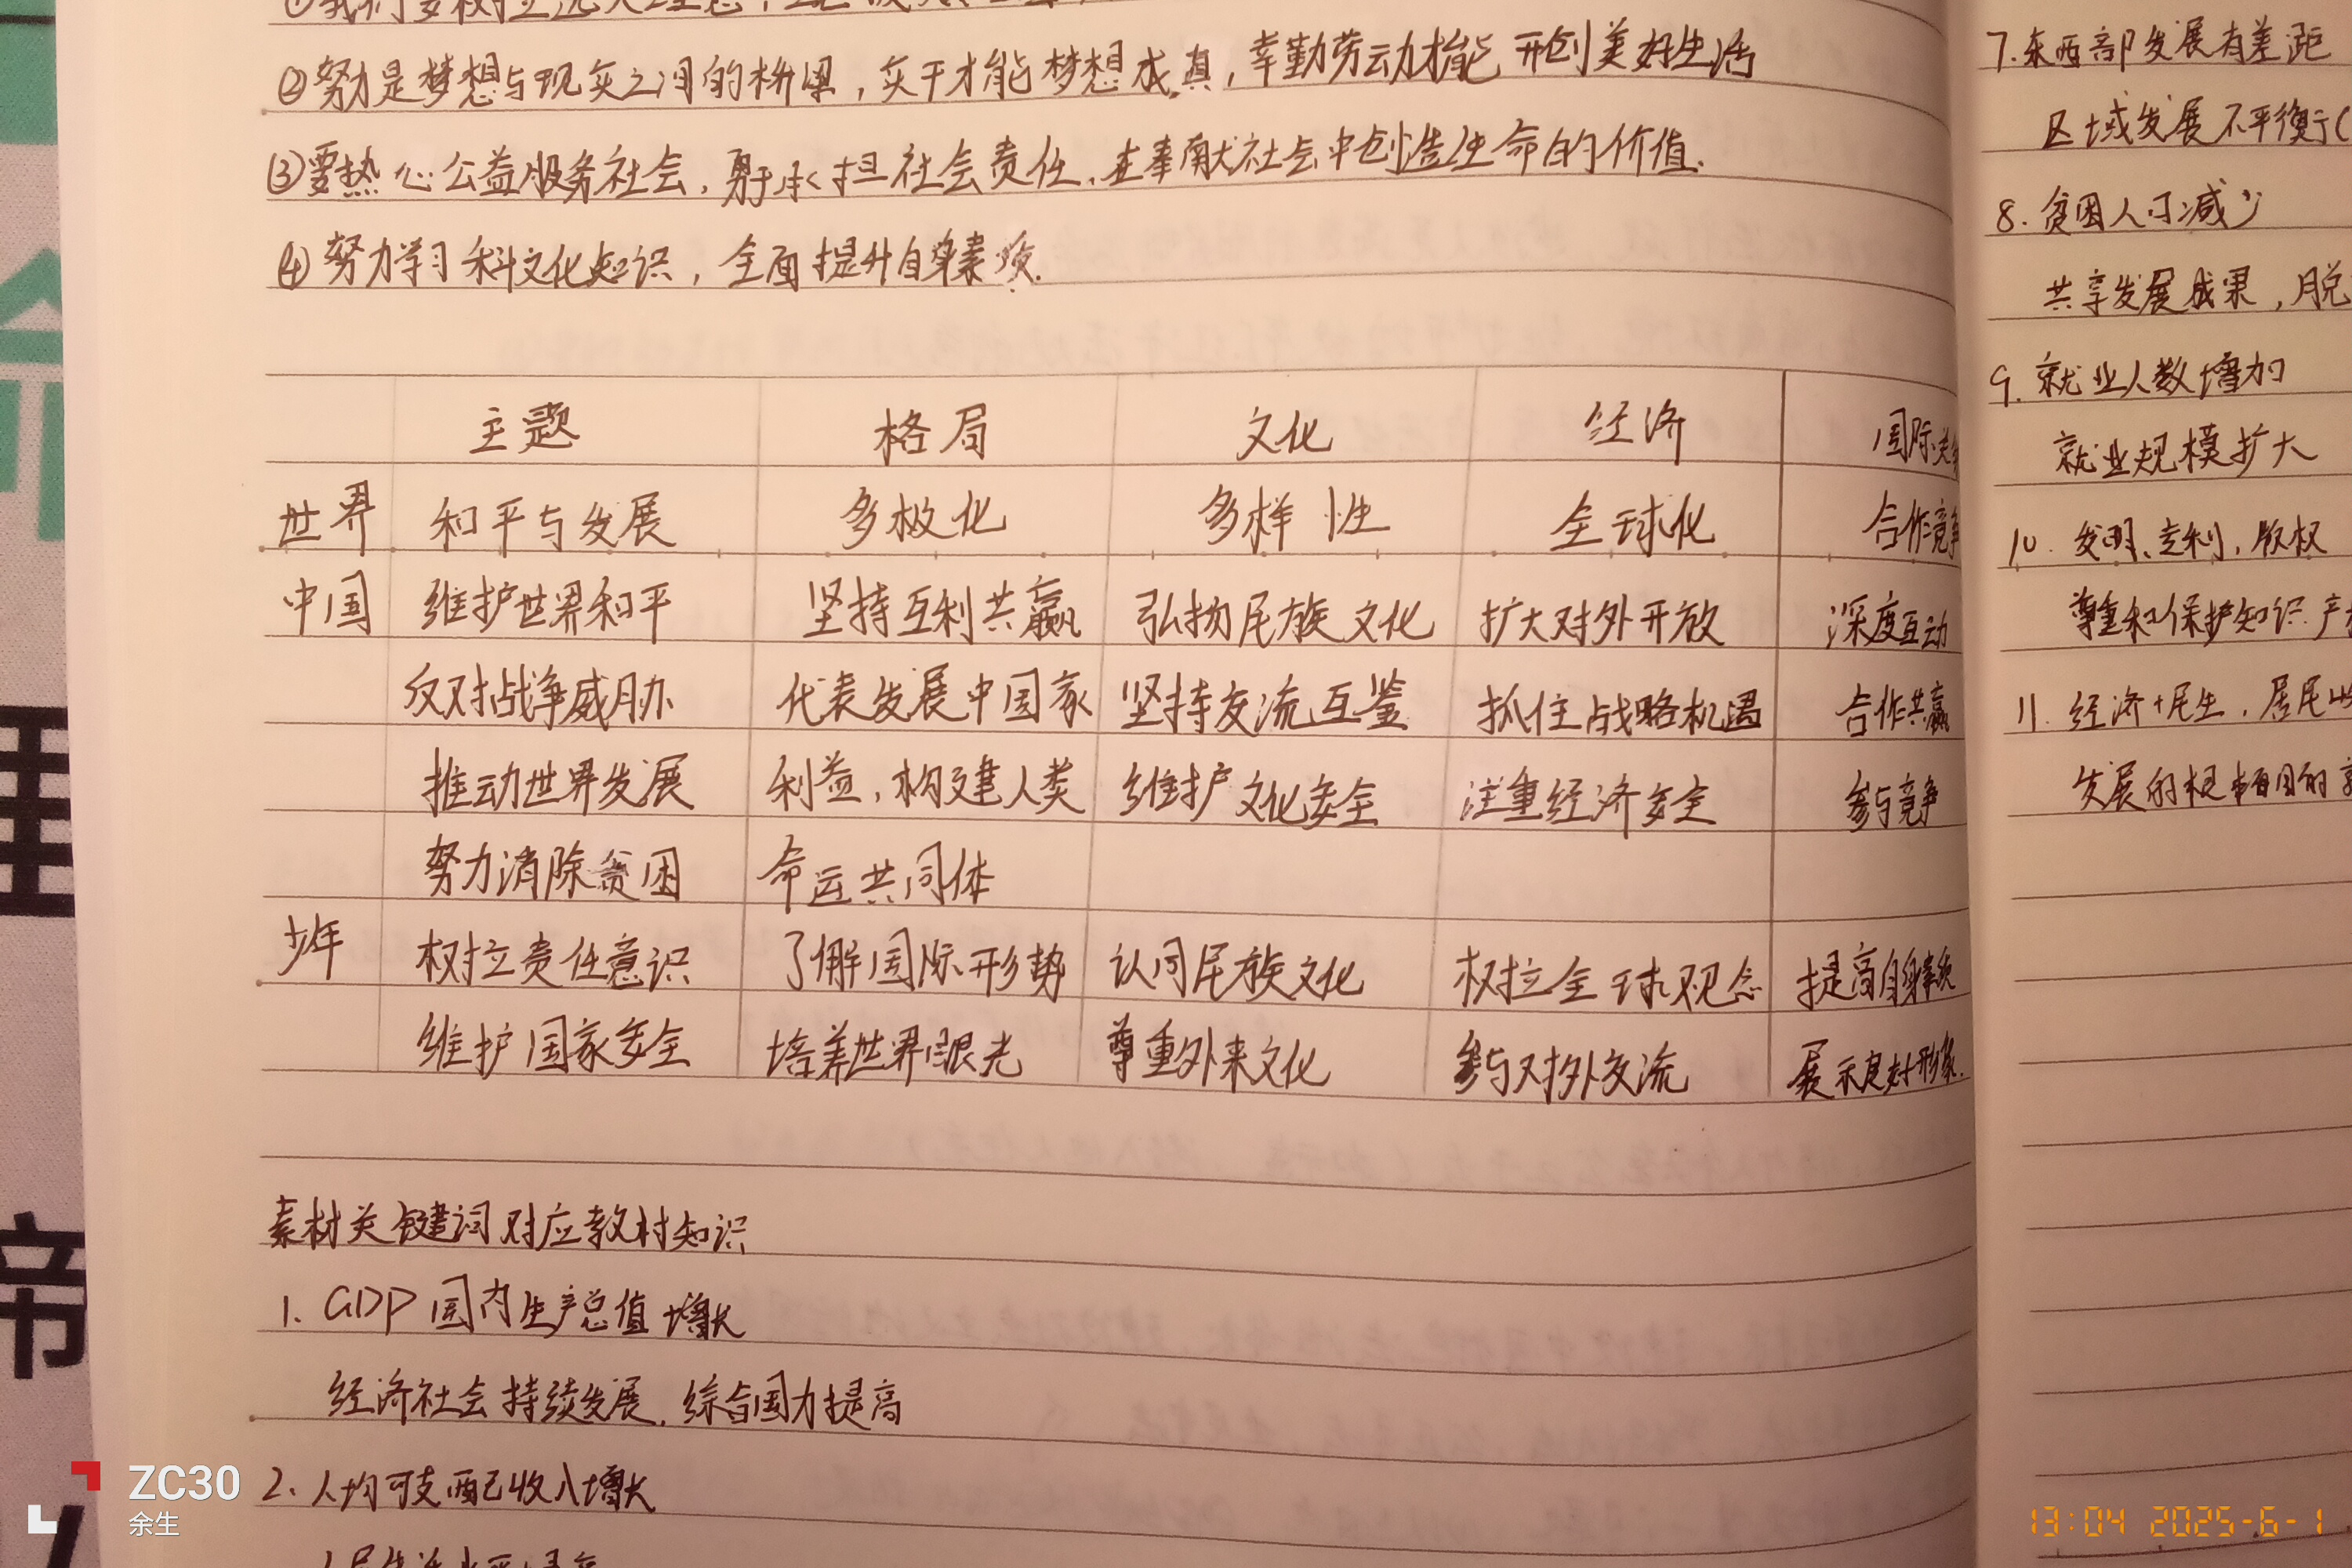 ①我们要树立远大理想
②努力是梦想与现实之间的桥梁，实干才能梦想成真，辛勤劳动才能开创美好生活
③要热心公益服务社会，勇于承担社会责任、在奉献社会中创造生命的价值.
④努力学习科文化知识，全面提升自身素质.
主题 格局 文化 经济 国际关
世界 和平与发展 多极化 多样性 全球化 合作竞争
中国 维护世界和平 坚持互利共赢 弘扬民族文化 扩大对外开放 深度互动
反对战争威胁 代表发展中国家 坚持交流互鉴 抓住战略机遇 合作共赢
推动世界发展 利益，构建人类 维护文化安全 注重经济安全 参与竞争
努力消除贫困 命运共同体
少年 树立责任意识 了解国际形势 认同民族文化 树立全球观念 提高自身素质
维护国家安全 培养世界眼光 尊重外来文化 参与对外交流 展示良好形象.
素材关键词对应教材知识
1. GDP 国内生产总值增长
经济社会持续发展，综合国力提高
2. 人均可支配收入增长
7.东西部发展有差距
区域发展不平衡(
8. 贫困人口减少
共享发展成果，脱
9. 就业人数增加
就业规模扩大
10. 发明、专利，版权
尊重和保护知识产权
11. 经济+民生，居民收
发展的根本目的
理
帝
ZC30
余生
13:04 2025-6-1